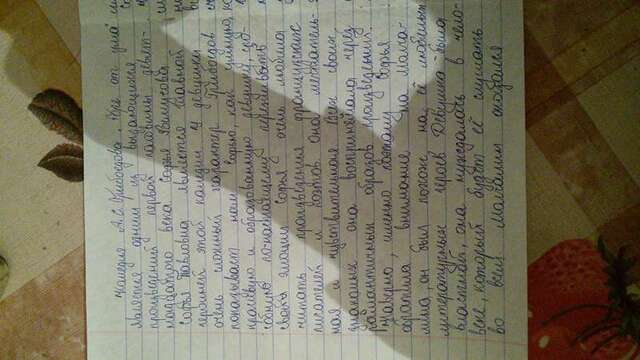 Комедия А. С. Грибоедова „Горе от ума"
является одним из выдающихся
произведений первой половины девят-
надцатого века Софья Фамусова
Софья Павловна является главной
героиней этой комедии У девушки
очень сложный характер Грибоедов
показывает нам Софью, как умную,
красивую и образованную девушку, спо-
собную по-настоящему переживать
свои эмоции Софья очень любила
читать произведения французских
писателей и поэтов. Она мечтатель-
ная и чувствительная Всех своих
знакомых она воспринимала через
романтичных образов произведений.
Наверно, именно поэтому Софья
обратила внимание на Молча-
лина, он был похож на её любимых
литературных героев Девушка была
властной, она нуждалась в чело-
веке, который будет её слушать
во всём Молчалин оказался